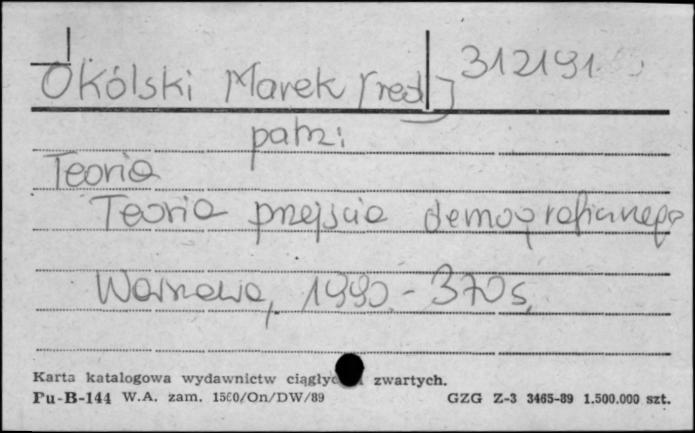 Okólski Marek [red] 312191
patrz:
Teoria
Teoria przejścia demograficznego
Warszawa, 1990. - 370 s.
Karta katalogowa wydawnictw zwartych.
Pu-B-144 W.A. zam. 1500/On/DW/89 GZG Z-3 3465-89 1.500.000 szt.